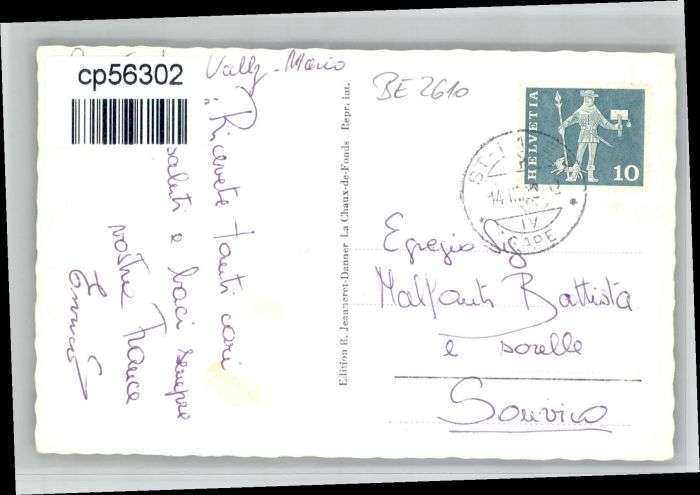 cp56302
Vally - Mario
Ricevete tanti cari
saluti e baci sempre
vostre Franca
BE 2610
Edition R. Jeanneret-Danner La Chaux-de-Fonds Repr. int.
HELVETIA
10
ST-I
14.
IV
Egregio Sig
Malfanti Battista
e sorelle
Sonvico